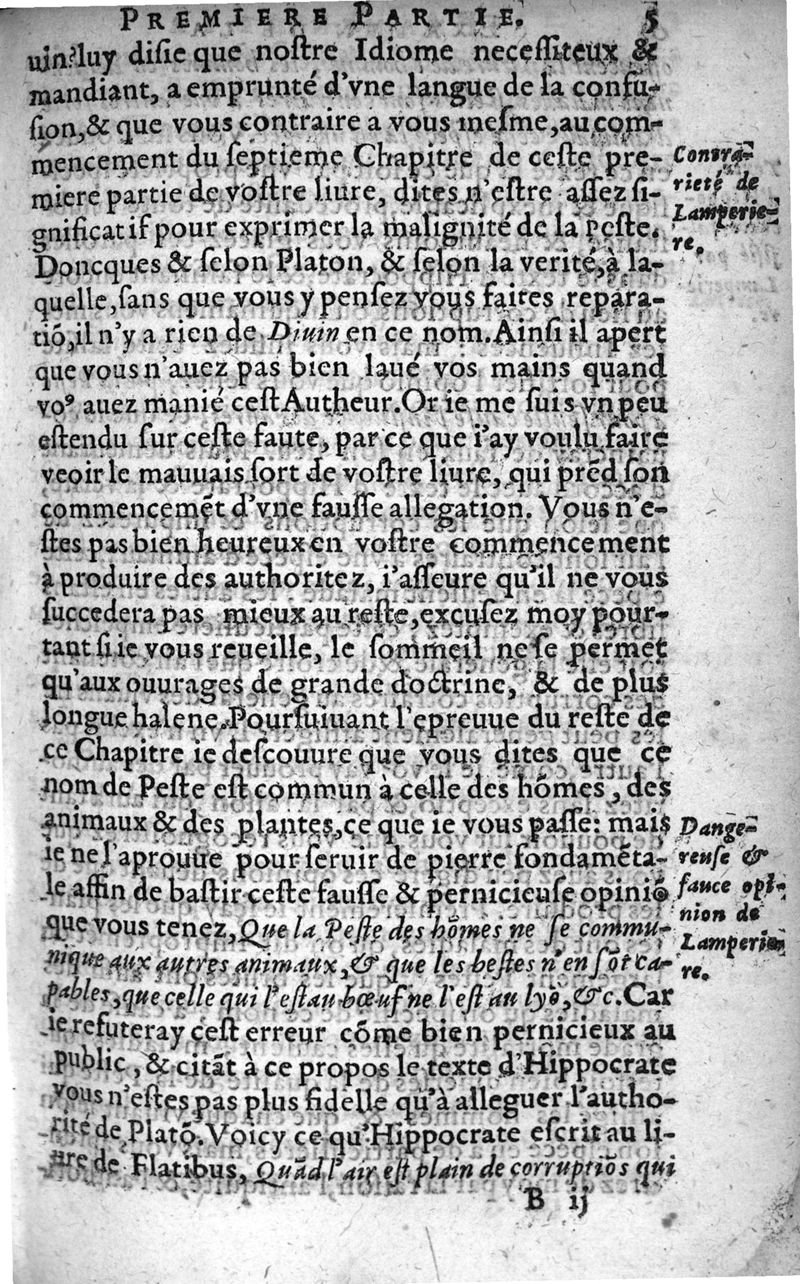 PREMIERE PARTIE. 5
uin?luy disie que nostre Idiome necessiteux &
mandiant, a emprunté d'vne langue de la confu-
sion,& que vous contraire a vous mesme,au com-
mencement du septieme Chapitre de ceste pre-
miere partie de vostre liure, dites n'estre assez si-
gnificatif pour exprimer la malignité de la Peste.
Contra-
rieté de
Lamperie-
re.
Doncques & selon Platon, & selon la verité,à la-
quelle,sans que vous y pensez vous faites repara-
tiõ,il n'y a rien de Diuin en ce nom.Ainsi il apert
que vous n'auez pas bien laué vos mains quand
voꝰ auez manié cest Autheur.Or ie me suis vn peu
estendu sur ceste faute, par ce que i'ay voulu faire
veoir le mauuais sort de vostre liure, qui prẽd son
commencemẽt d'vne fausse allegation. Vous n'e-
stes pas bien heureux en vostre commencement
à produire des authoritez, i'asseure qu'il ne vous
succedera pas mieux au reste,excusez moy pour-
tant si ie vous reueille, le sommeil ne se permet
qu'aux ouurages de grande doctrine, & de plus
longue halene.Poursuiuant l'epreuue du reste de
ce Chapitre ie descouure que vous dites que ce
nom de Peste est commun à celle des hõmes, des
animaux & des plantes,ce que ie vous passe: mais
ie ne l'aprouue pour seruir de pierre fondamẽta-
le affin de bastir ceste fausse & pernicieuse opiniõ
que vous tenez,Que la Peste des hõmes ne se commu-
Dange-
reuse &
fauce opi-
nion de
Lamperie-
re.
nique aux autres animaux,& que les bestes n'en sõt ca-
pables,que celle qui l'est au bœuf ne l'est au lyõ,&c.Car
ie refuteray cest erreur cõme bien pernicieux au
public, & citãt à ce propos le texte d'Hippocrate
vous n'estes pas plus fidelle qu'à alleguer l'autho-
rité de Platõ.Voicy ce qu'Hippocrate escrit au li-
ure de Flatibus, Quãd l'air est plain de corruptiõs qui
B ij